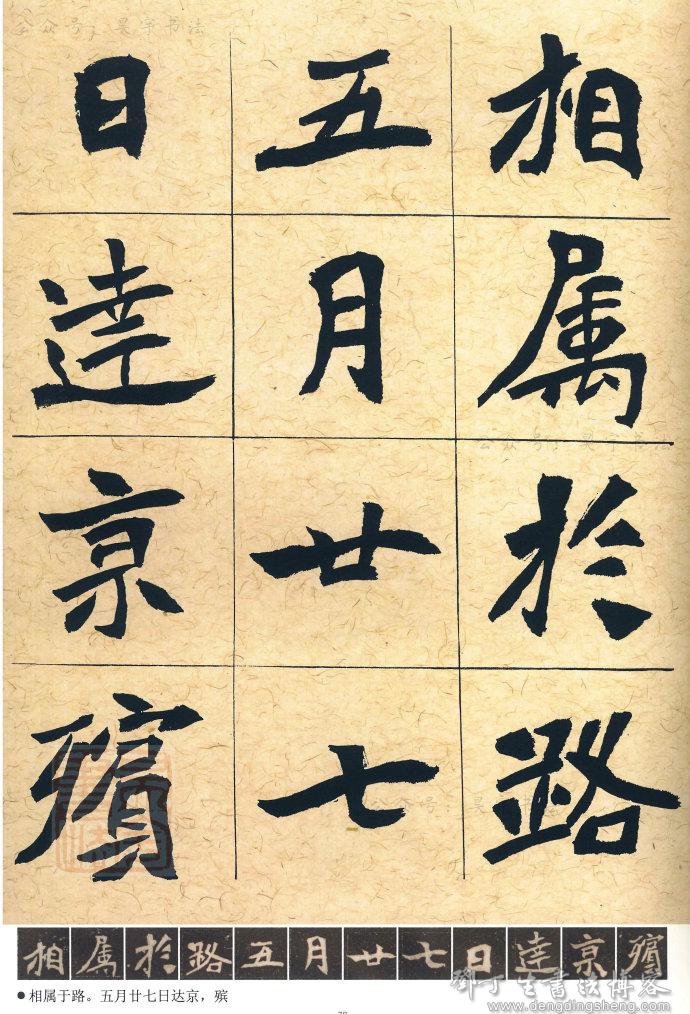 公众号：昊宇书法
相属於路
五月廿七
日達京殯
相属於路五月廿七日達京殯
●相属于路。五月廿七日达京，殡
邓丁生书法博客
www.dengdingsheng.com